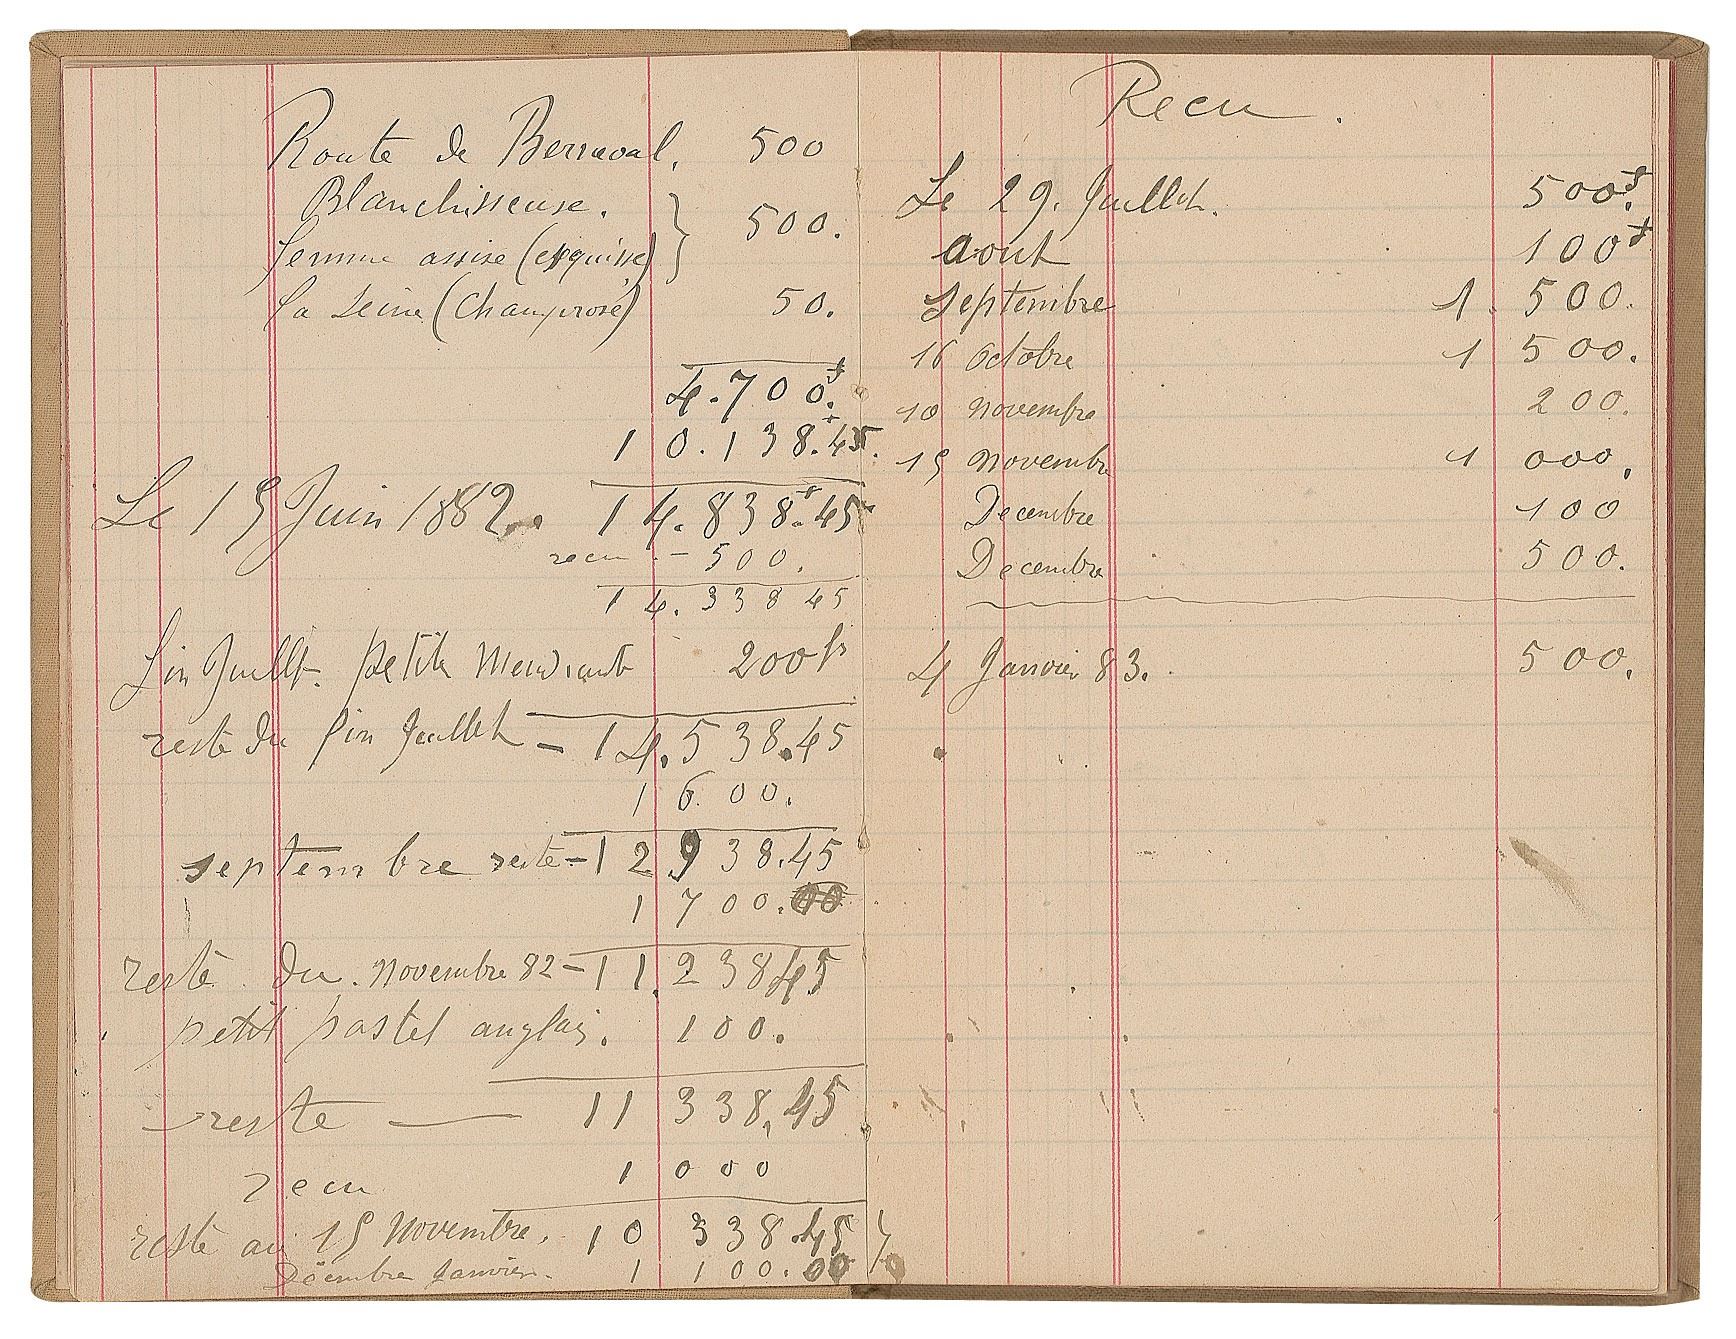 Route de Berneval. 500
Blanchisseuse.
femme assise (esquisse) } 500.
La Seine (Champrosé) 50.
4.700.f
10.138.45.
Le 15 Juin 1882. 14.838.f45
recu - 500.
14.338 45
fin Juillet. petite Mendiante 200 fr
reste du fin Juillet - 14.538.45
1600.
septembre reste - 12938.45
1700.00
reste du. Novembre 82 - 11.23845
petit pastel anglais. 100.
reste — 11 338,45
recu 1000
reste au 15 Novembre. 10 338.45
Décembre Janvier. 1 100.00
Recu.
Le 29. Juillet. 500f.
aout 100f
septembre 1.500.
16 Octobre 1 500.
10 Novembre 200.
15 Novembre 1 000.
Decembre 100
Decembre 500.
4 Janvier 83. 500.